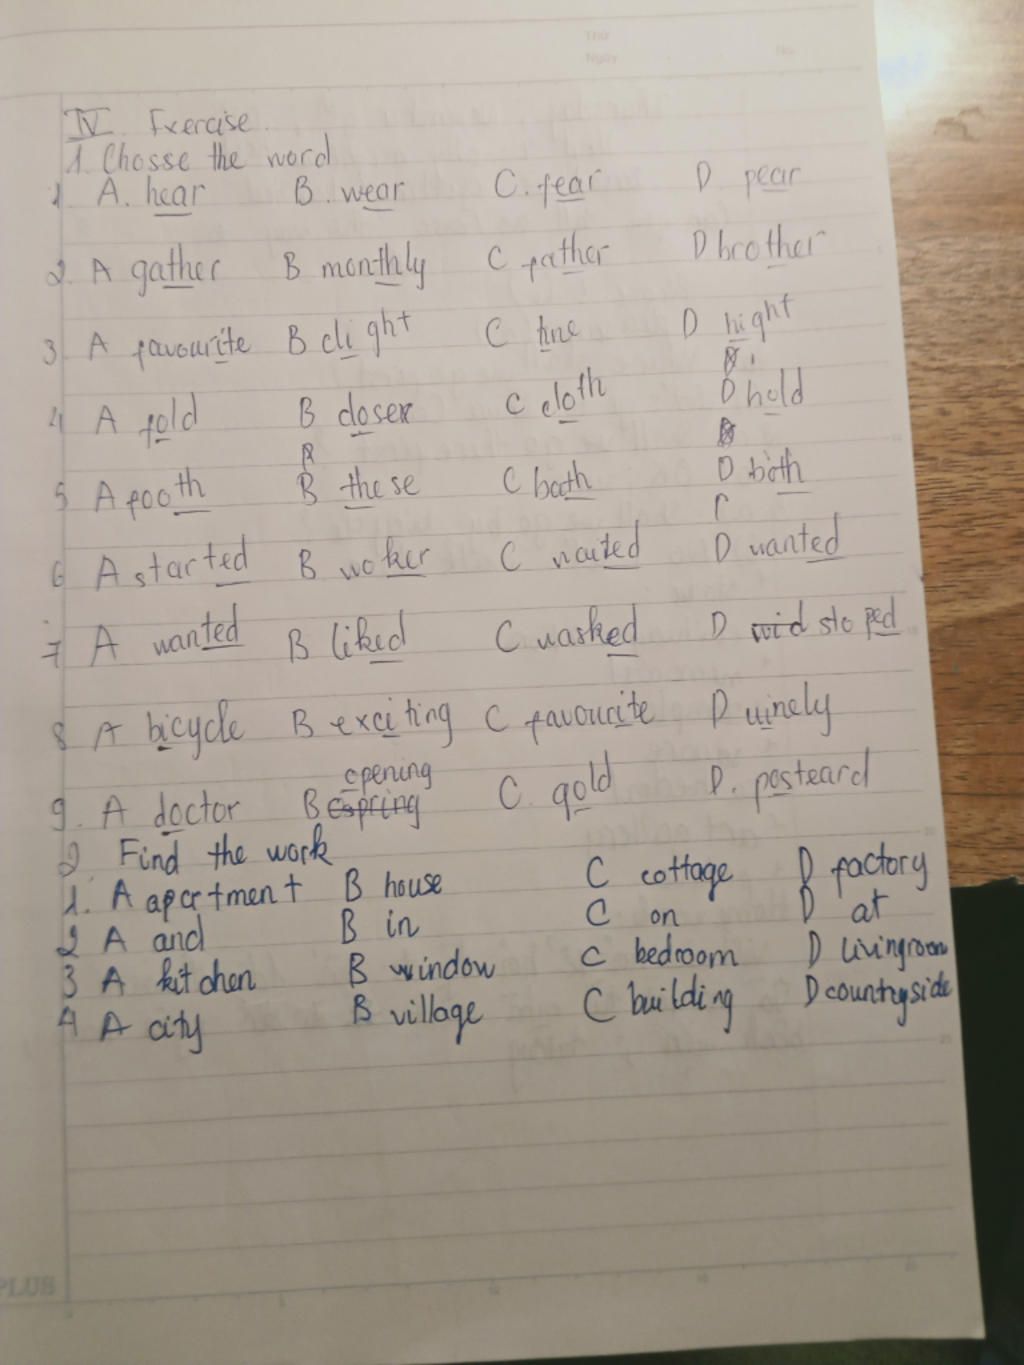 Thứ
Ngày No.
IV. Exercise.
1. Chosse the word
1. A. hear B. wear C. fear D. pear
2. A gather B monthly C father D brother
3 A favourite B slight C fine D hight
4 A fold B closer C cloth D hold
5 A footh B these C bath D both
6 A started B woker C waited D wanted
7 A wanted B liked C wasked D stoped
8 A bicycle B exciting C favourite D uinely
opening
9. A doctor B C. gold D. posteard
2. Find the work
1. A apartment B house C cottage D factory
2 A and B in C on D at
3 A kitchen B window C bedroom D livingroom
4 A city B village C building D countryside
PLUS